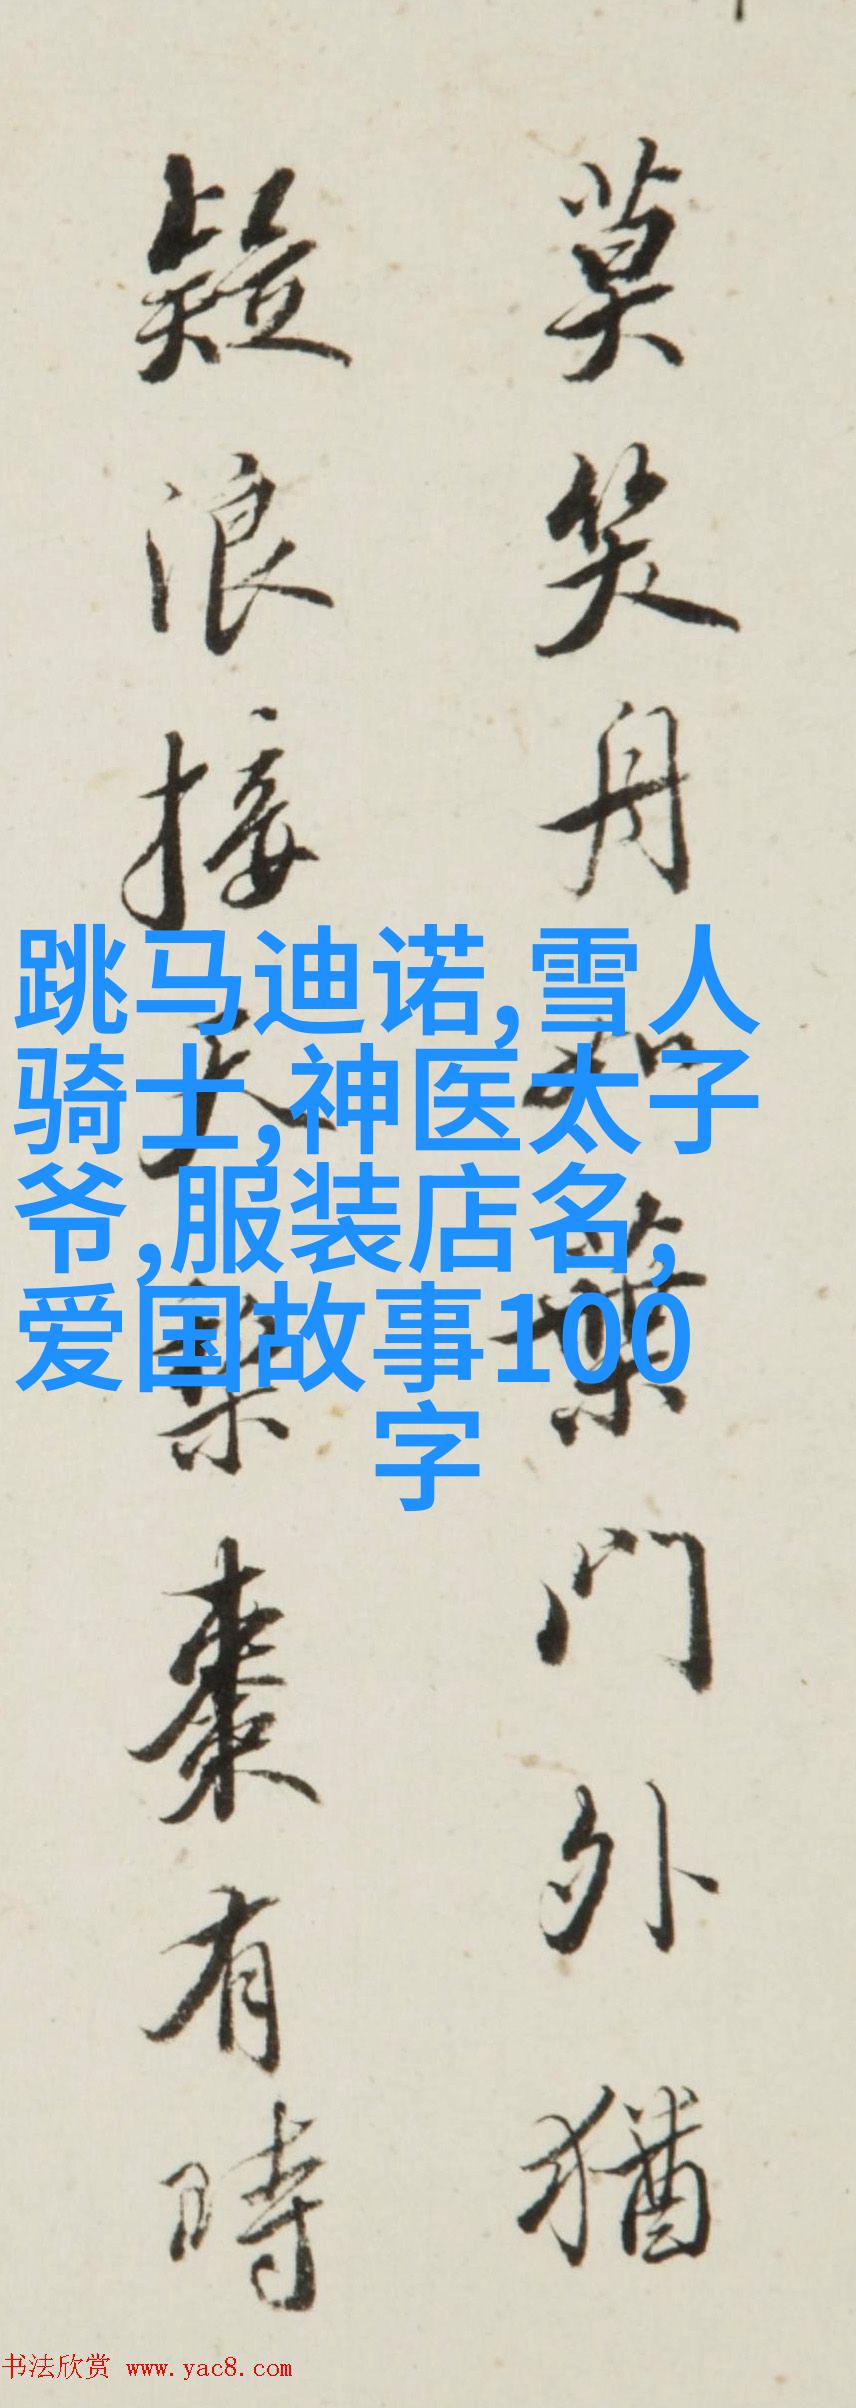 莫笑丹如葉門外猶
疑浪接天槩棗有時
跳马迪诺,雪人
骑士,神医太子
爷,服装店名,
爱国故事100
字
书法欣赏 www.yac8.com